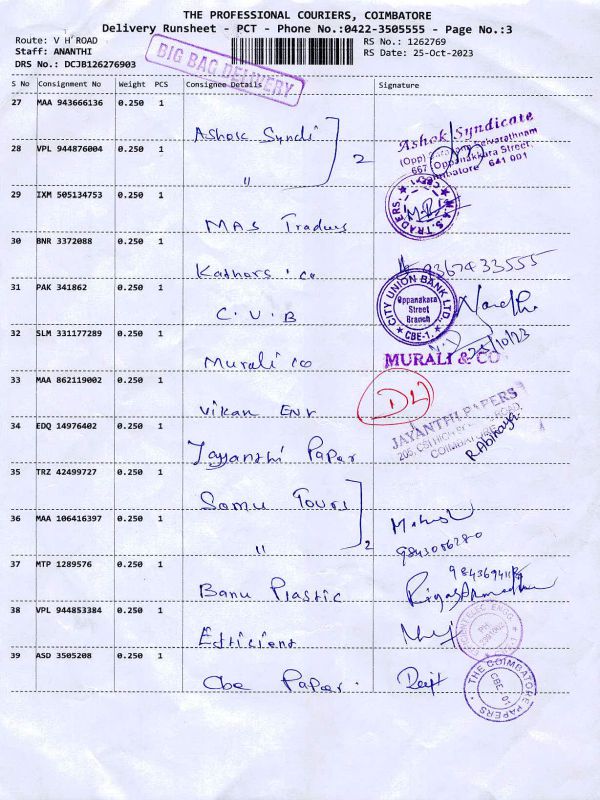 THE PROFESSIONAL COURIERS, COIMBATORE
Delivery Runsheet - PCT - Phone No.:0422-3505555 - Page No.:3
Route: V H ROAD
RS No.: 1262769
Staff: ANANTHI
RS Date: 25-Oct-2023
DRS No.: DCJB126276903
BIG BAG DELIVERY
S No Consignment No Weight PCS Consignee Details Signature
27 MAA 943666136 0.250 1
Ashok Syndi
Ashok Syndicate
(Opp)
667 Oppanakkara Street,
Coimbatore 641 001
28 VPL 944876004 0.250 1
"
2
29 IXM 505134753 0.250 1
MAS Traders
M.A.S. TRADERS
30 BNR 3372088 0.250 1
9367433555
31 PAK 341862 0.250 1
C.U.B
CITY UNION BANK LTD.
Oppanakara
Street
Branch
CBE-1.
32 SLM 331177289 0.250 1
25/10/23
Murali co
MURALI & CO
33 MAA 862119002 0.250 1
Vikan Enr
34 EDQ 14976402 0.250 1
Jayyanthi Paper
JAYANTHI PAPERS
35 TRZ 42499727 0.250 1
Somu Tours
36 MAA 106416397 0.250 1
"
2
9843056280
37 MTP 1289576 0.250 1
Banu Plastic
38 VPL 944853384 0.250 1
Efficient
39 ASD 3505208 0.250 1
Cbe Paper.
THE COIMBATORE PAPERS
CBE. 01